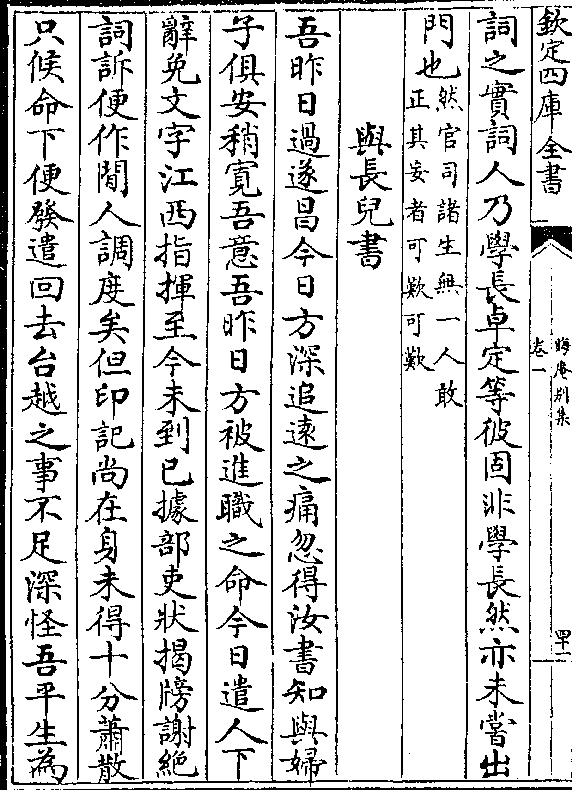 欽定四庫全書
晦庵别集
卷一
四十一
詞之實詞人乃學長卓定等彼固非學長然亦未嘗出
門也然官司諸生無一人敢
正其妄者可歎可歎
與長兒書
吾昨日過遂昌今日方深追遠之痛忽得汝書知與婦
子俱安稍寛吾意吾昨日方被進職之命今日遣人下
辭免文字江西指揮至今未到已據部吏狀揭牓謝絶
詞訴便作閒人調度矣但印記尚在身未得十分蕭散
只候命下便發遣回去台越之事不足深怪吾平生為